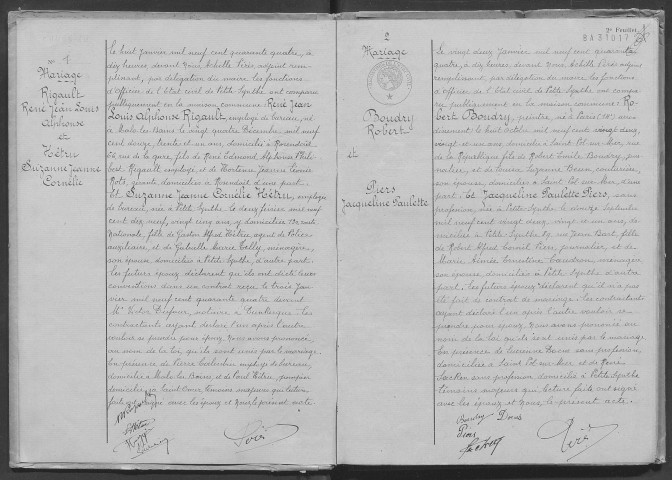 N° 1
Mariage
Rigault
René Jean Louis
Alphonse
et
Hétru
Suzanne Jeanne
Cornélie
Le huit Janvier mil neuf cent quarante quatre, à
dix heures, devant Nous Achille Péré adjoint rem-
plissant, par délégation du maire les fonctions
d'officier de l'état civil de Petite Synthe ont comparu
publiquement en la maison commune: René Jean
Louis Alphonse Rigault, employé de bureau, né
à Malo les Bains le vingt quatre Décembre mil neuf
cent douze, trente et un ans, domicilié à Rosendaël
rue de la gare, fils de René Edmond Alphonse
Rigault, employé, et de Hortense
domiciliés à Rosendaël d'une part.
Et Suzanne Jeanne Cornélie Hétru, employée
de bureau, née à Petite Synthe, le deux février mil neuf
cent dix neuf, vingt cinq ans, domiciliée
Nationale, fille de Gaston Alfred Hétru, agent de Police
auxiliaire, et de Gabrielle Marie ménagère,
son épouse, domiciliés à Petite Synthe, d'autre part.
Les futurs époux déclarent qu'ils ont dicté leurs
conventions dans un contrat reçu le trois Jan-
vier mil neuf cent quarante quatre devant
Me Victor notaire à Dunkerque. Les
contractants ayant déclaré l'un après l'autre
vouloir se prendre pour époux, Nous avons prononcé,
au nom de la loi, qu'ils sont unis par le mariage.
En présence de Pierre employé de bureau,
domicilié à Malo les Bains, et de Paul Hétru, pompier
domicilié à Saint Omer, témoins majeurs qui lecture
faite ont signé avec les époux et Nous le présent acte.
2
Mariage
Boudry
Robert
et
Piers
Jacqueline Paulette
2e Feuillet
Le vingt deux Janvier mil neuf cent quarante
quatre, à dix heures devant Nous Achille Péré adjoint
remplissant, par délégation du maire les fonctions
d'officier de l'état civil de Petite Synthe ont com-
paru publiquement en la maison commune: Ro-
bert Boudry, peintre, né à Paris
le huit Octobre mil neuf cent vingt deux,
vingt et un ans, domicilié à Saint Pol sur Mer, rue
de la République fils de Robert Emile Boudry, jour-
nalier, et de Louise Suzanne couturière,
son épouse, domiciliés à Saint Pol sur Mer, d'une
part. Et Jacqueline Paulette Piers, sans
profession, née à Petite Synthe, le Septembre
mil neuf cent vingt deux, vingt et un ans, do-
miciliée à Petite Synthe rue Jean Bart, fille
de Robert Alfred Piers, journalier et de
Marie Aimée Ernestine ménagère
son épouse, domiciliés à Petite Synthe d'autre
part. Les futurs époux déclarent qu'il n'a pas
été fait de contrat de mariage. Les contractants
ayant déclaré l'un après l'autre vouloir se
prendre pour époux, Nous avons prononcé au
nom de la loi qu'ils sont unis par le mariage.
En présence de sans profession,
domiciliée à Saint Pol sur Mer, et de
sans profession domicilié à Petite Synthe
témoins majeurs qui, lecture faite ont signé
avec les époux et Nous le présent acte.
Boudry
Piers